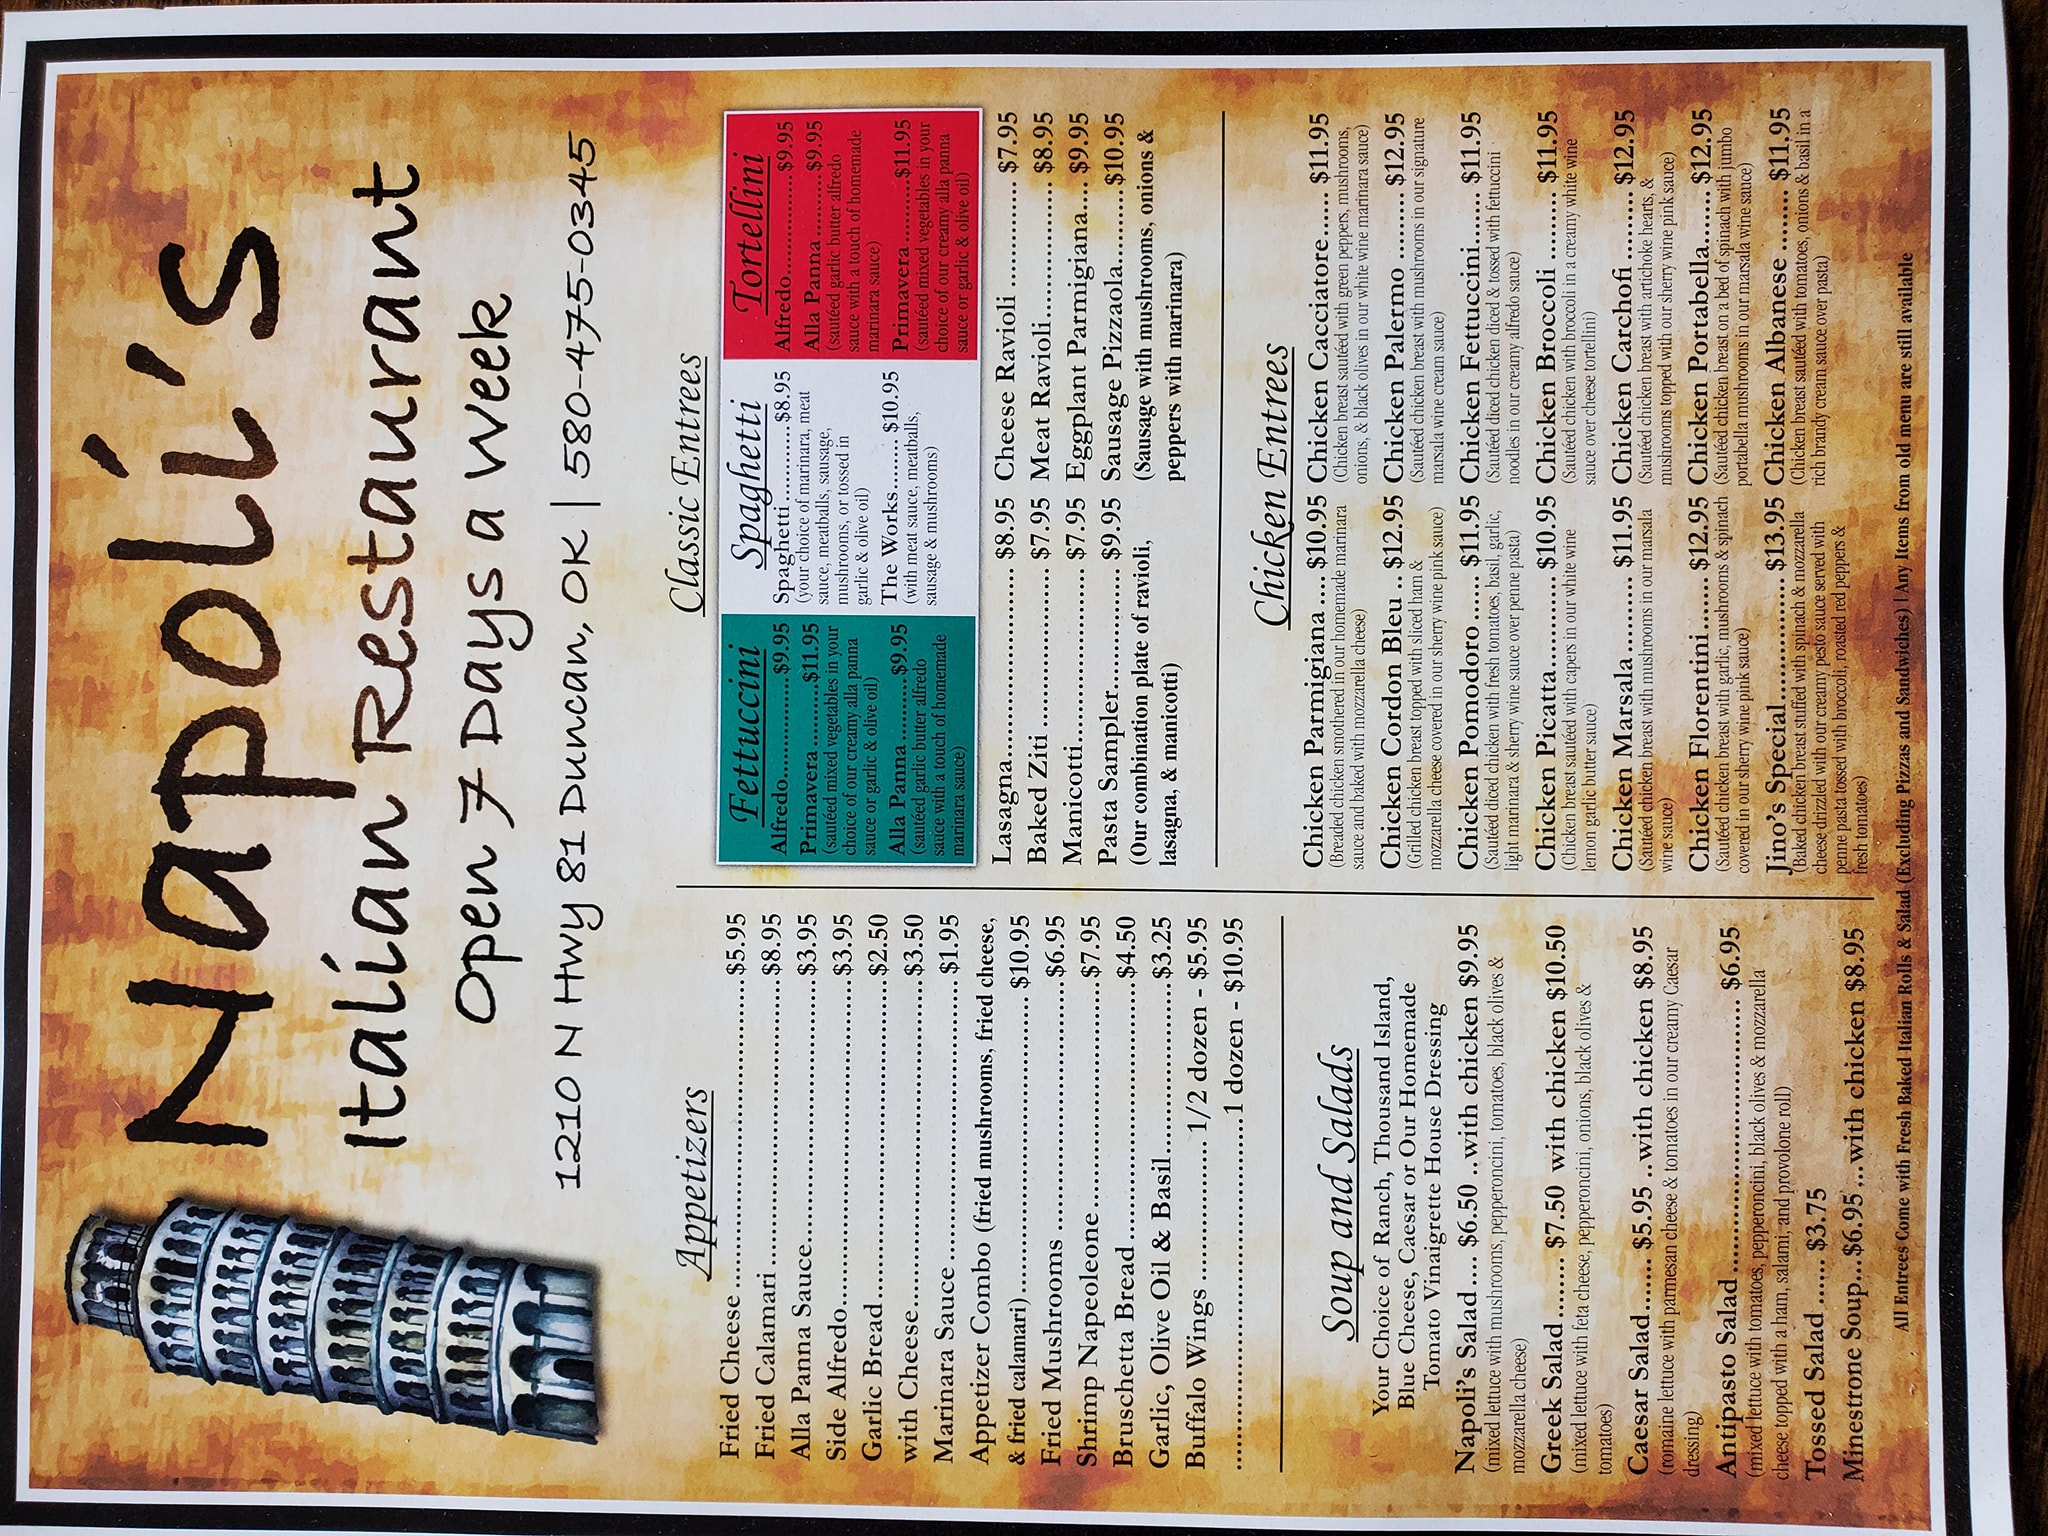 Napoli's
Italian Restaurant
Open 7 Days a Week
1210 N Hwy 81 Duncan, OK | 580-475-0345
Appetizers
Fried Cheese........$5.95
Fried Calamari........$8.95
Alla Panna Sauce........$3.95
Side Alfredo........$3.95
Garlic Bread........$2.50
with Cheese........$3.50
Marinara Sauce........$1.95
Appetizer Combo (fried mushrooms, fried cheese,
& fried calamari)........$10.95
Fried Mushrooms........$6.95
Shrimp Napoleone........$7.95
Bruschetta Bread........$4.50
Garlic, Olive Oil & Basil........$3.25
Buffalo Wings........1/2 dozen - $5.95
........1 dozen - $10.95
Soup and Salads
Your Choice of Ranch, Thousand Island,
Blue Cheese, Caesar or Our Homemade
Tomato Vinaigrette House Dressing
Napoli's Salad.... $6.50 ..with chicken $9.95
(mixed lettuce with mushrooms, pepperoncini, tomatoes, black olives &
mozzarella cheese)
Greek Salad........ $7.50 with chicken $10.50
(mixed lettuce with feta cheese, pepperoncini, onions, black olives &
tomatoes)
Caesar Salad....... $5.95 ..with chicken $8.95
(romaine lettuce with parmesan cheese & tomatoes in our creamy Caesar
dressing)
Antipasto Salad........ $6.95
(mixed lettuce with tomatoes, pepperoncini, black olives & mozzarella
cheese topped with a ham, salami, and provolone roll)
Tossed Salad ....... $3.75
Minestrone Soup...$6.95 ...with chicken $8.95
Classic Entrees
Fettuccini
Alfredo........$9.95
Primavera ........$11.95
(sautéed mixed vegetables in your
choice of our creamy alla panna
sauce or garlic & olive oil)
Alla Panna ........$9.95
(sautéed garlic butter alfredo
sauce with a touch of homemade
marinara sauce)
Spaghetti
Spaghetti ........$8.95
(your choice of marinara, meat
sauce, meatballs, sausage,
mushrooms, or tossed in
garlic & olive oil)
The Works....... $10.95
(with meat sauce, meatballs,
sausage & mushrooms)
Tortellini
Alfredo........ $9.95
Alla Panna ........$9.95
(sautéed garlic butter alfredo
sauce with a touch of homemade
marinara sauce)
Primavera ........$11.95
(sautéed mixed vegetables in your
choice of our creamy alla panna
sauce or garlic & olive oil)
Lasagna........ $8.95
Baked Ziti ........ $7.95
Manicotti........ $7.95
Pasta Sampler........$9.95
(Our combination plate of ravioli,
lasagna, & manicotti)
Cheese Ravioli ........ $7.95
Meat Ravioli........ $8.95
Eggplant Parmigiana.... $9.95
Sausage Pizzaola........$10.95
(Sausage with mushrooms, onions &
peppers with marinara)
Chicken Entrees
Chicken Parmigiana .... $10.95
(Breaded chicken smothered in our homemade marinara
sauce and baked with mozzarella cheese)
Chicken Cordon Bleu.. $12.95
(Grilled chicken breast topped with sliced ham &
mozzarella cheese covered in our sherry wine pink sauce)
Chicken Pomodoro ...... $11.95
(Sautéed diced chicken with fresh tomatoes, basil, garlic,
light marinara & sherry wine sauce over penne pasta)
Chicken Picatta........ $10.95
(Chicken breast sautéed with capers in our white wine
lemon garlic butter sauce)
Chicken Marsala ........ $11.95
(Sautéed chicken breast with mushrooms in our marsala
wine sauce)
Chicken Florentini........$12.95
(Sautéed chicken breast with garlic, mushrooms & spinach
covered in our sherry wine pink sauce)
Jino's Special........ $13.95
(Baked chicken breast stuffed with spinach & mozzarella
cheese drizzled with our creamy pesto sauce served with
penne pasta tossed with broccoli, roasted red peppers &
fresh tomatoes)
Chicken Cacciatore...... $11.95
(Chicken breast sautéed with green peppers, mushrooms,
onions, & black olives in our white wine marinara sauce)
Chicken Palermo ........ $12.95
(Sautéed chicken breast with mushrooms in our signature
marsala wine cream sauce)
Chicken Fettuccini...... $11.95
(Sautéed diced chicken diced & tossed with fettuccini
noodles in our creamy alfredo sauce)
Chicken Broccoli ........ $11.95
(Sautéed chicken with broccoli in a creamy white wine
sauce over cheese tortellini)
Chicken Carchofi ........ $12.95
(Sautéed chicken breast with artichoke hearts, &
mushrooms topped with our sherry wine pink sauce)
Chicken Portabella....... $12.95
(Sautéed chicken breast on a bed of spinach with jumbo
portabella mushrooms in our marsala wine sauce)
Chicken Albanese ........ $11.95
(Chicken breast sautéed with tomatoes, onions & basil in a
rich brandy cream sauce over pasta)
All Entrees Come with Fresh Baked Italian Rolls & Salad (Excluding Pizzas and Sandwiches) | Any Items from old menu are still available